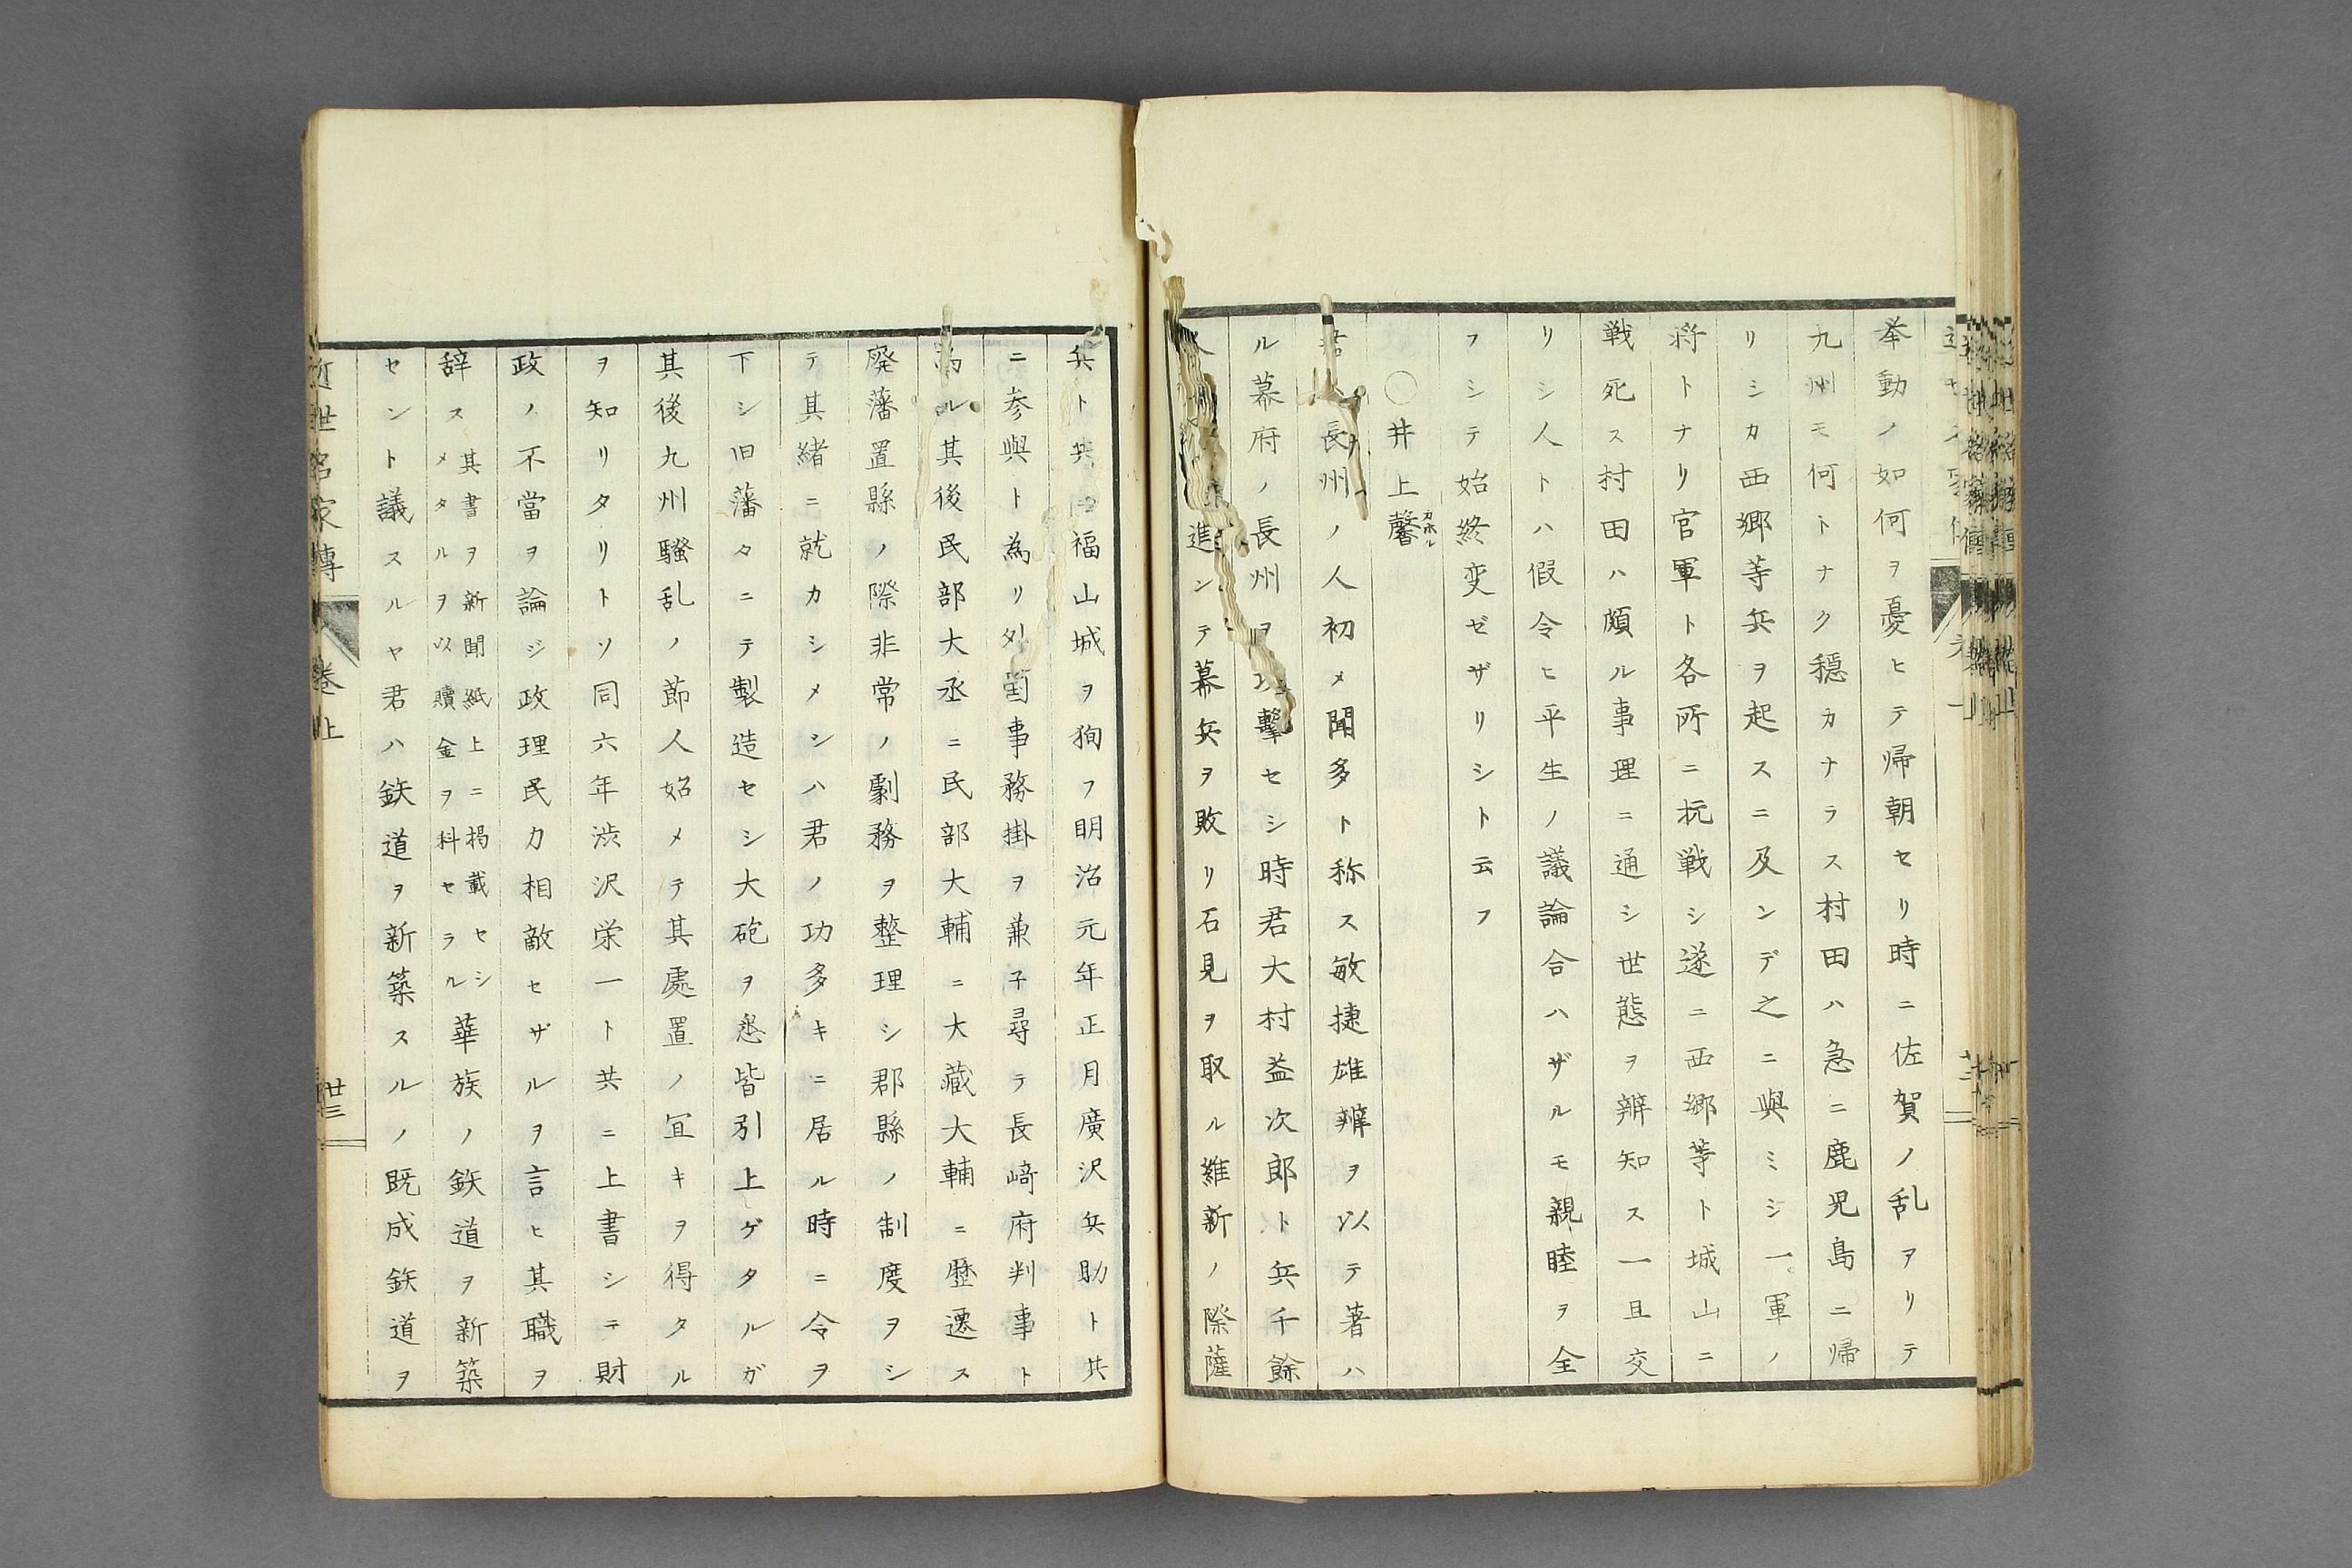 挙動ノ如何ヲ憂ヒテ帰朝セリ時ニ佐賀ノ乱アリテ
九州モ何トナク穏カナラス村田ハ急ニ鹿児島ニ帰
リシカ西郷等兵ヲ起スニ及ンデ之ニ與ミシ一軍ノ
将トナリ官軍ト各所ニ抗戦シ遂ニ西郷等ト城山ニ
戦死ス村田ハ頗ル事理ニ通シ世態ヲ辨知ス一旦交
リシ人トハ假令ヒ平生ノ議論合ハザルモ親睦ヲ全
フシテ始終変ゼザリシト云フ
○井上馨
カホル
君ハ長州ノ人初メ聞多ト称ス敏捷雄辨ヲ以テ著ハ
ル幕府ノ長州ヲ攻撃セシ時君大村益次郎ト兵千餘
進ンテ幕兵ヲ敗リ石見ヲ取ル維新ノ際薩
兵ト共ニ福山城ヲ狥フ明治元年正月廣沢兵助ト共
ニ参與ト為リ外国事務掛ヲ兼子尋テ長﨑府判事ト
為ル其後民部大丞ニ民部大輔ニ大蔵大輔ニ歴遷ス
廃藩置縣ノ際非常ノ劇務ヲ整理シ郡縣ノ制度ヲシ
テ其緒ニ就カシメシハ君ノ功多キニ居ル時ニ令ヲ
下シ旧藩々ニテ製造セシ大砲ヲ悉皆引上ゲタルガ
其後九州騒乱ノ節人始メテ其處置ノ宜キヲ得タル
ヲ知リタリトソ同六年渋沢栄一ト共ニ上書シテ財
政ノ不當ヲ論ジ政理民力相敵セザルヲ言ヒ其職ヲ
辞ス其書ヲ新聞紙上ニ掲載セシメタルヲ以贖金ヲ科セラル華族ノ鉄道ヲ新築
セント議スルヤ君ハ鉄道ヲ新築スルノ既成鉄道ヲ
近世名家傳 巻上 廿三